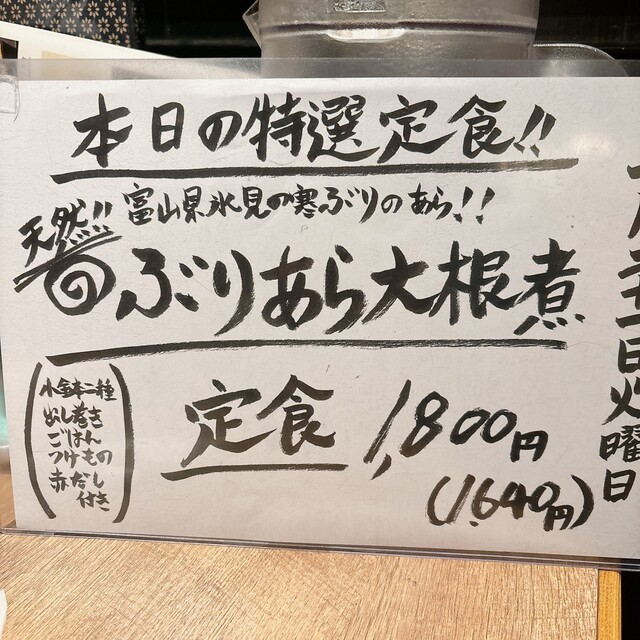 本日の特選定食!!
富山県氷見の寒ぶりのあら!!
天然!!
ぶりあら大根煮
定食 1,800円
(1,640円)
(小鉢二種
だし巻き
ごはん
つけもの
赤だし
付き)
曜日